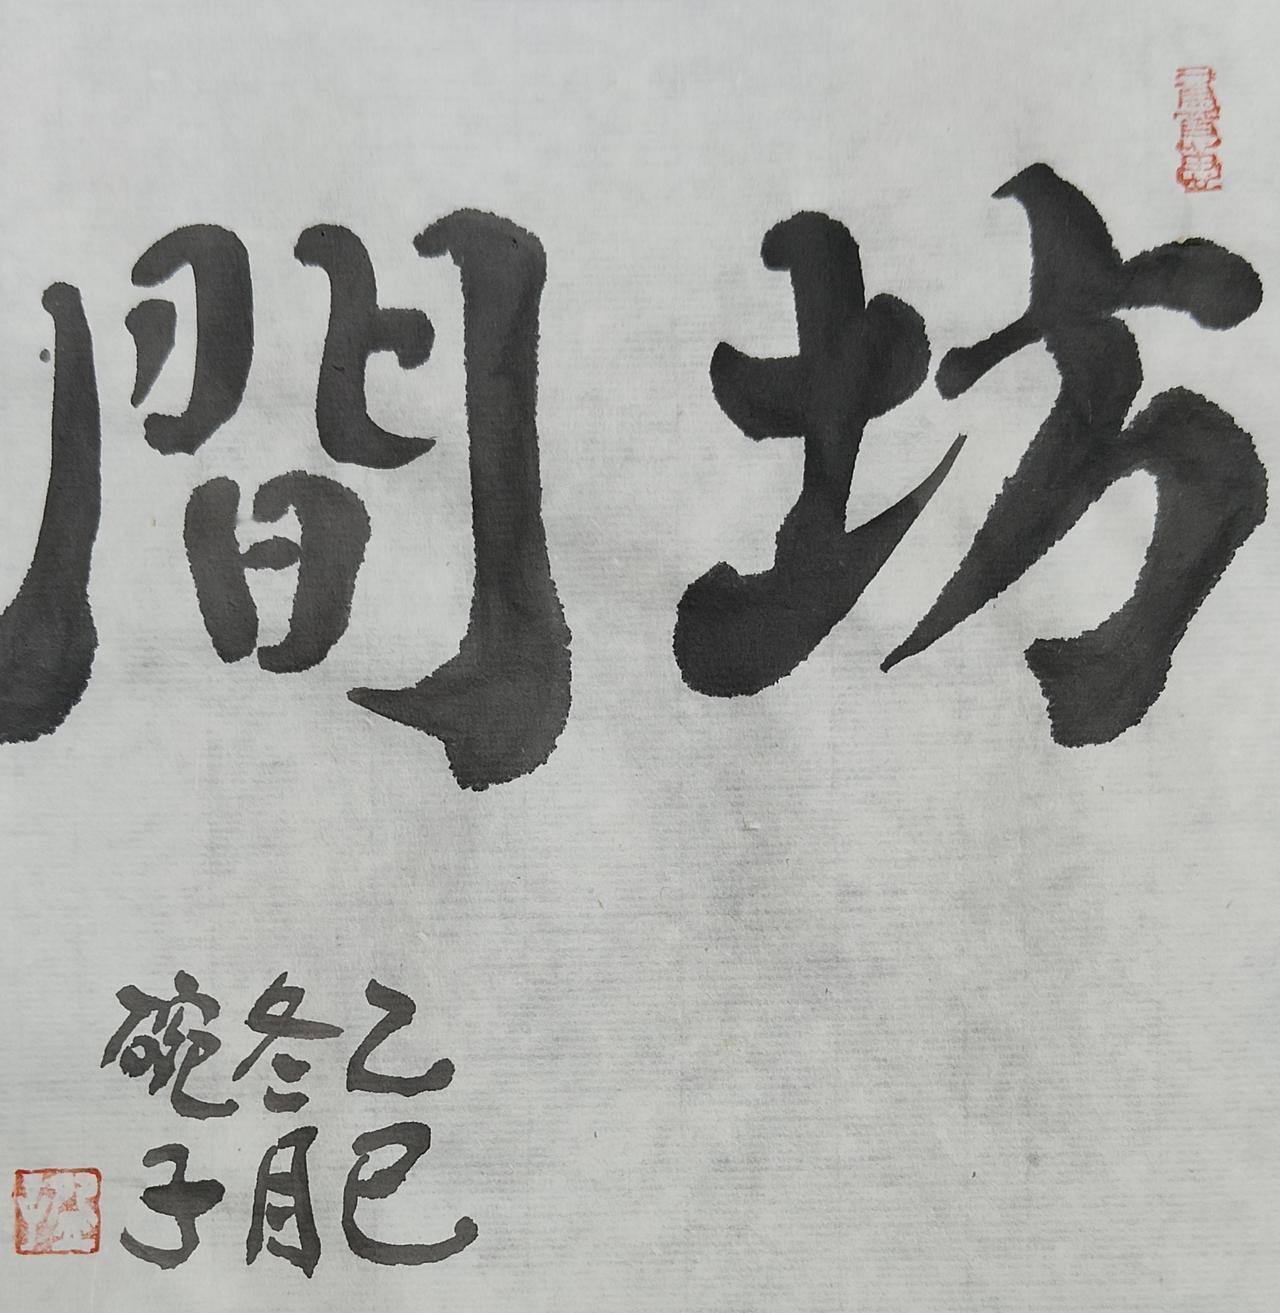 坊間
乙巳
冬月
碗子